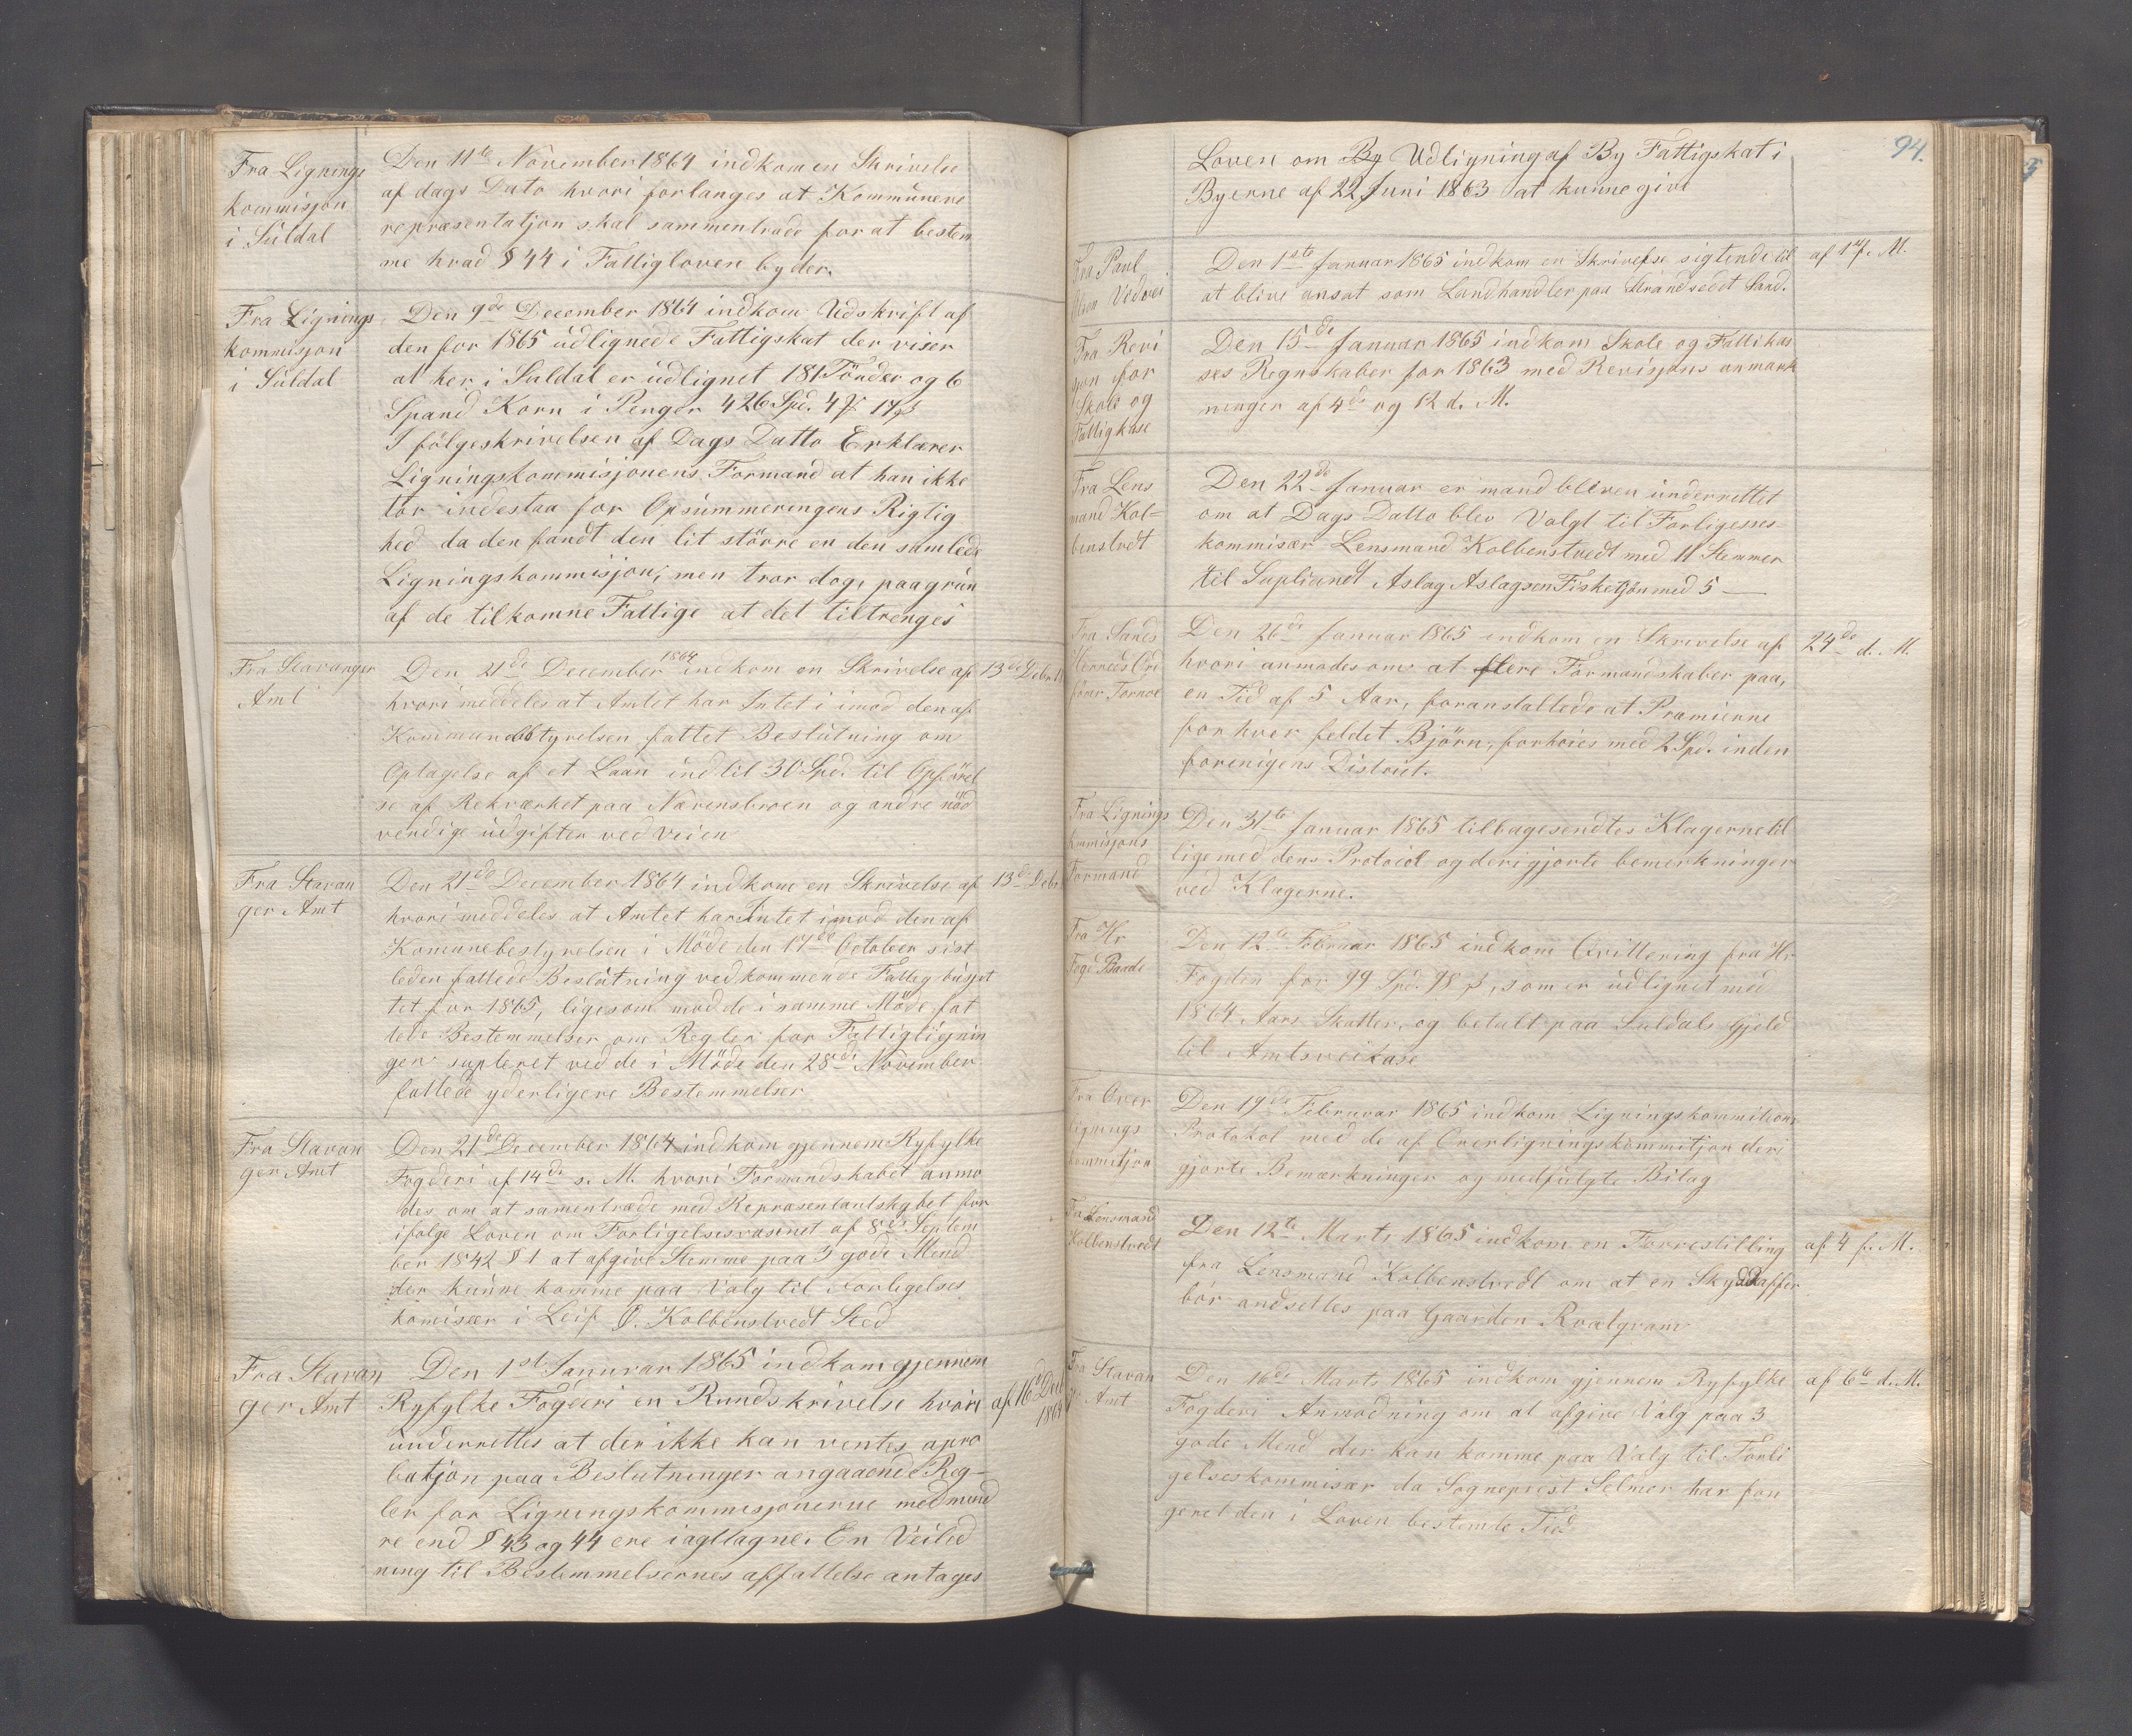 Fra Lignings
kommisjon
i Suldal
Den 11te November 1864 indkom en Skrivelse
af dags Dato hvori forlanges at Kommunens
repræsentatjon skal sammentræde for at bestem
me hvad § 44 i Fattigloven byder.
Fra Lignings
kommisjon
i Suldal
Den 9de December 1864 indkom Udskrift af
den for 1865 udlignede Fattigskat der viser
at her i Suldal er udlignet 181 Tönder og 6
Spand Korn i Penger 426 Spd. 4 17
I fölgeskrivelsen af Dags Datto Erklærer
Ligningskommisjonens Formand at han ikke
tör indestaa for Opsummeringens Rigtig
hed da den fandt den lit större en den samlede
Ligningskommisjon, men tror dog, paagrun
af de tilkomne Fattige at det tiltrenges
Fra Stavanger
Amt
Den 21de December 1864 indkom en Skrivelse af 13de Debr
hvori meddeles at Amtet har Intet i imod den af
Kommunebstyrelsen fattet Beslutning om
Optagelse af et Laan indtil 30 Spd. til Opförel
se af Rekværket paa Nærensbroen og andre nöd
vendige udgifter ved Veien
Fra Stavan
ger Amt
Den 21de December 1864 indkom en Skrivelse af 13de Debr
hvori meddeles at Amtet har Intet imod den af
Komunebestyrelsen i Möde den 17de October sist
leden fattede Beslutning vedkommende Fattigbudjet
tet for 1865, ligesom mod de i samme Möde fat
tede Bestemmelser om Regler for Fattiglignin
gen supleret ved de i Möde den 28de November
fattede yderligere Bestemmelser
Fra Stavan
ger Amt
Den 21de December 1864 indkom gjennem Ryfylke
Fogderi af 14de s. M. hvori Formandskabet anmo
des om at samentræde med Repræsentantskabet for
ifölge Loven om Forligelsesvæsnet af 8de Septem
ber 1842 § 1 at afgive Stemme paa 3 gode Mend
der kunne komme paa Valg til Forligelses
komisær i Leif O. Kolbenstvedt Sted
Fra Stavan
ger Amt
Den 1ste Januvar 1865 indkom gjennem
Ryfylke Fogderi en Rundskrivelse hvori af 16de Debr
1864
underrettes at der ikke kan ventes apro
batjon paa Beslutninger angaaende Reg-
ler for Ligningskommisjonerne med mind
re end § 43 og 44 ere iagttagne. En Veiled
ning til Bestemmelsernes affattelse antages
94.
Loven om By Udligning af By Fattigskat i
Byerne af 22 Juni 1863 at kunne give
Fra Paul
Olson Vedvei
Den 1ste Januar 1865 indkom en Skrivelse sigtende til af 1 f. M.
at blive ansat som Landhandler paa Strandstedet Sand.
Fra Revi
sjon for
Skole og
Fattigkase
Den 15de Januar 1865 indkom Skole og Fattikas
ses Regnskaber for 1863 med Revisjons anmærk
ninger af 4de og 12 d. M.
Fra Lens
mand Kol-
benstvdt
Den 22de Januar er mand bleven underrettet
om at Dags Datto blev Valgt til Forligesses
kommisær Lensmand Kolbenstvedt med 11 Stemmer
til Supliant Aslag Aslagsen Fisketjön med 5 —
Fra Sands
Herreds Ord
förer Tornoe
Den 26de Januar 1865 indkom en Skrivelse af 24de d. M.
hvori anmodes om at flere Formandskaber paa,
en Tid af 5 Aar, foranstaltede at Præmierne
for hver feldet Björn, forhöies med 2 Spd. inden
forenigens District.
Fra Lignings
kommisjons
Formand
Den 31te Januar 1865 tilbagesendtes Klagerne til
lige med dens Protocol og deri gjorte bemerkninger
ved Klagerne.
Fra Hr
Foged Baade
Den 12te Februar 1865 indkom Qvittering fra Hr
Fogden for 99 Spd. 98 ß, som er udlignet med
1864 Aars Skatter, og betalt paa Suldals Gjeld
til Amtsveikase
Fra Over
lignings
kommitjon
Den 19de Februvar 1865 indkom Ligningskommitions
Protokol med de af Overligningskommitjon deri
gjorte Bemærkninger og medfulgte Bilag
Fra Lensmand
Kolbenstvedt
Den 12te Marts 1865 indkom en Forrestilling af 4 f. M.
fra Lensmand Kolbenstvedt om at en Skydskaffer
bör andsettes paa Gaarden Kvalgvam
Fra Stavan
ger Amt
Den 16de Marts 1865 indkom gjennem Ryfylke af 6te d. M.
Fogderi Anmodning om at afgive Valg paa 3
gode Mend der kan komme paa Valg til Forli
gelseskommisær da Sogneprest Selmer har fon
geret den i Loven bestemte Tied